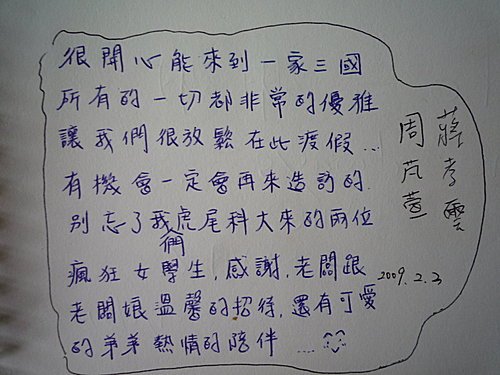 很開心能來到一家三國
所有的一切都非常的優雅
讓我們很放鬆在此渡假...
有機會一定會再來造訪的.
別忘了我們虎尾科大來的兩位
瘋狂女學生,感謝,老闆跟
老闆娘溫馨的招待,還有可愛
的弟弟熱情的陪伴 ....
蔣孝雯
周芃萱
2009.2.3